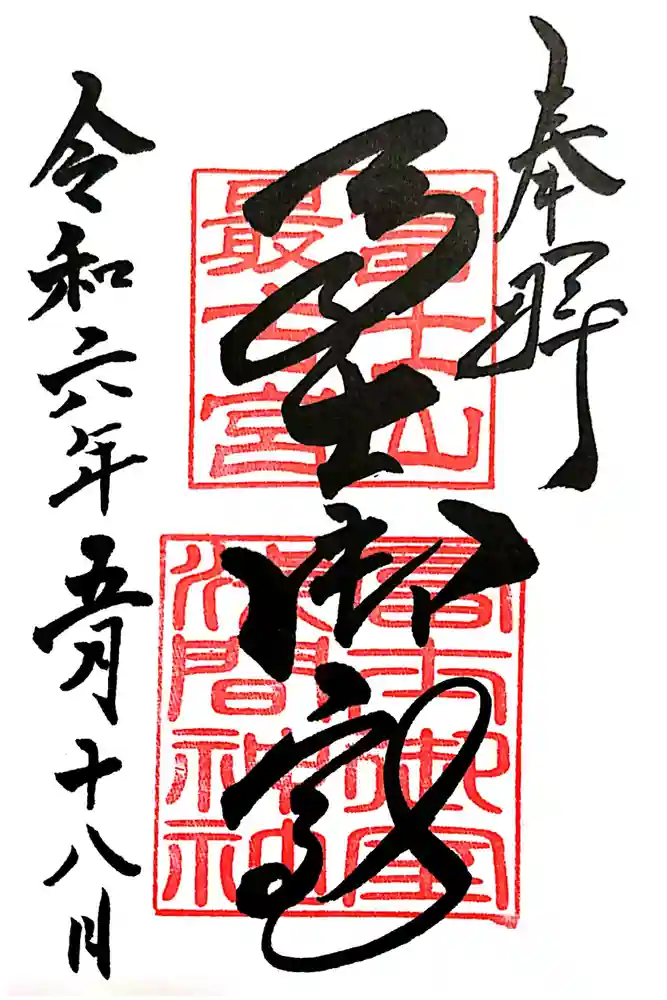 奉拝
冨士御室
富士山
最古宮
冨士御室
浅間神社
令和六年五月十八日